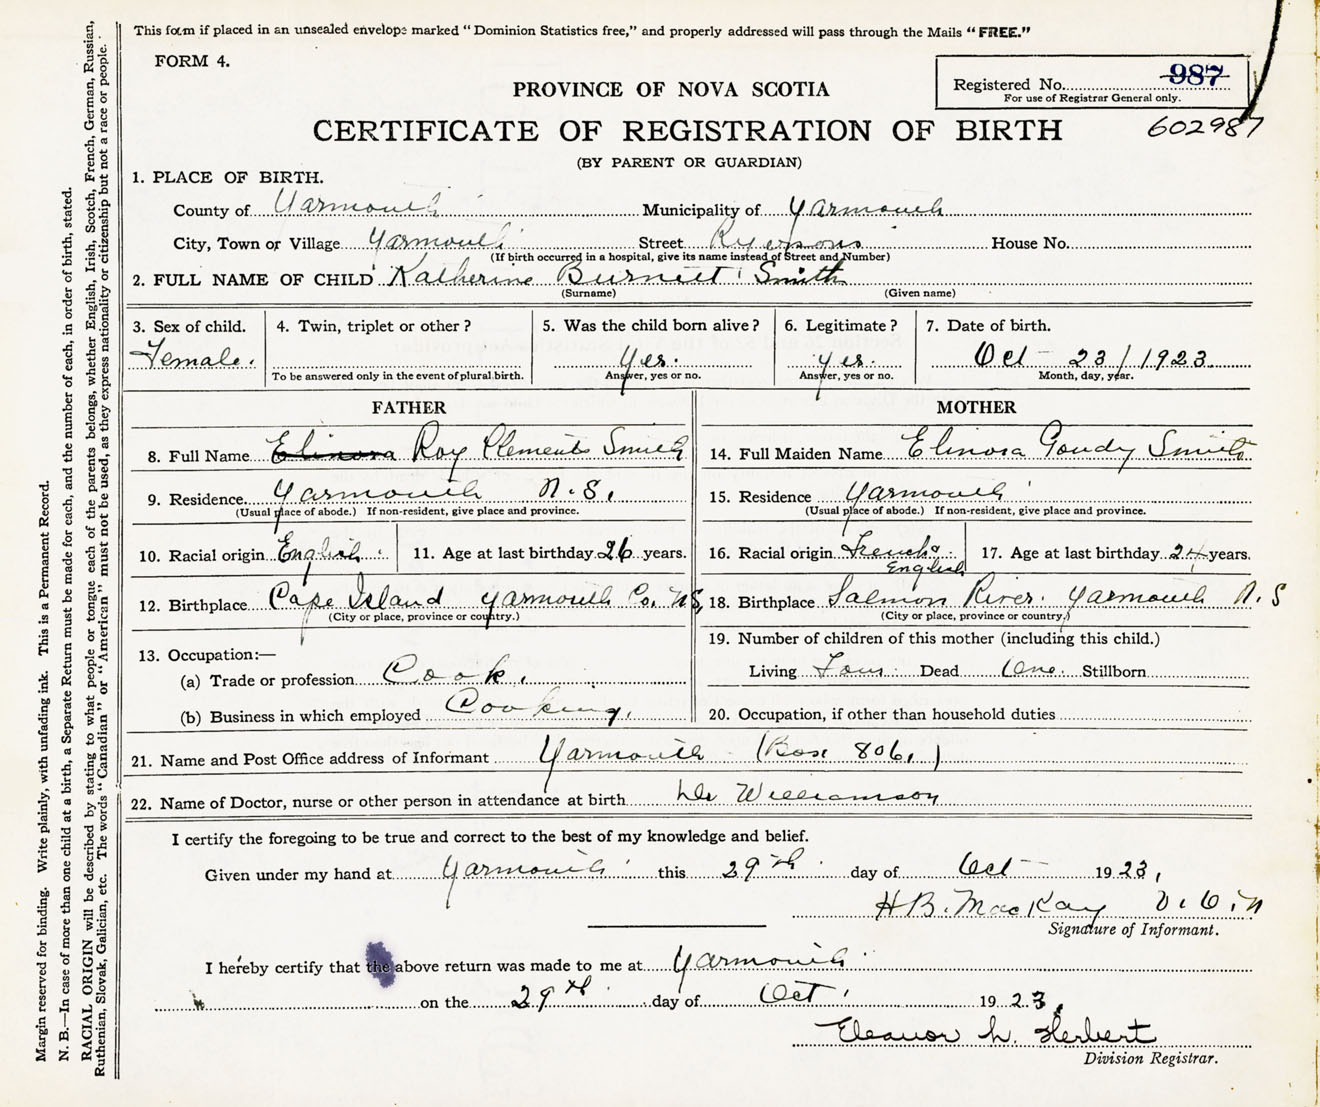 This form if placed in an unsealed envelope marked "Dominion Statistics free," and properly addressed will pass through the Mails "FREE."
FORM 4.
Registered No. 987
For use of Registrar General only.
PROVINCE OF NOVA SCOTIA
CERTIFICATE OF REGISTRATION OF BIRTH
602987
(BY PARENT OR GUARDIAN)
1. PLACE OF BIRTH.
County of Yarmouth Municipality of Yarmouth
City, Town or Village Yarmouth Street Ryersons House No.
(If birth occurred in a hospital, give its name instead of Street and Number)
2. FULL NAME OF CHILD Katherine Burnett Smith
(Surname) (Given name)
3. Sex of child. 4. Twin, triplet or other? 5. Was the child born alive? 6. Legitimate? 7. Date of birth.
Female. Yes. Yes. Oct 23/1923.
To be answered only in the event of plural birth. Answer, yes or no. Answer, yes or no. Month, day, year.
FATHER MOTHER
8. Full Name Elinora Roy Clements Smith 14. Full Maiden Name Elinora Goudy Smith
9. Residence Yarmouth N.S. 15. Residence Yarmouth
(Usual place of abode.) If non-resident, give place and province. (Usual place of abode.) If non-resident, give place and province.
10. Racial origin English. 11. Age at last birthday 26 years. 16. Racial origin French & English 17. Age at last birthday 24 years.
12. Birthplace Cape Island Yarmouth Co. N.S. 18. Birthplace Salmon River. Yarmouth N.S
(City or place, province or country.) (City or place, province or country.)
13. Occupation:— 19. Number of children of this mother (including this child.)
(a) Trade or profession Cook. Living Four Dead One. Stillborn
(b) Business in which employed Cooking. 20. Occupation, if other than household duties
21. Name and Post Office address of Informant Yarmouth (Box 806.)
22. Name of Doctor, nurse or other person in attendance at birth Dr Williamson
I certify the foregoing to be true and correct to the best of my knowledge and belief.
Given under my hand at Yarmouth this 29th day of Oct 1923.
H.B. MacKay
Signature of Informant.
I hereby certify that the above return was made to me at Yarmouth
on the 29th day of Oct. 1923.
Eleanor L. Herbert
Division Registrar.
Margin reserved for binding. Write plainly, with unfading ink. This is a Permanent Record.
N. B.—In case of more than one child at a birth, a Separate Return must be made for each, and the number of each, in order of birth, stated.
RACIAL ORIGIN will be described by stating to what people or tongue each of the parents belongs, whether English, Irish, Scotch, French, German, Russian,
Ruthenian, Slovak, Galician, etc. The words "Canadian" or "American" must not be used, as they express nationality or citizenship but not a race or people.